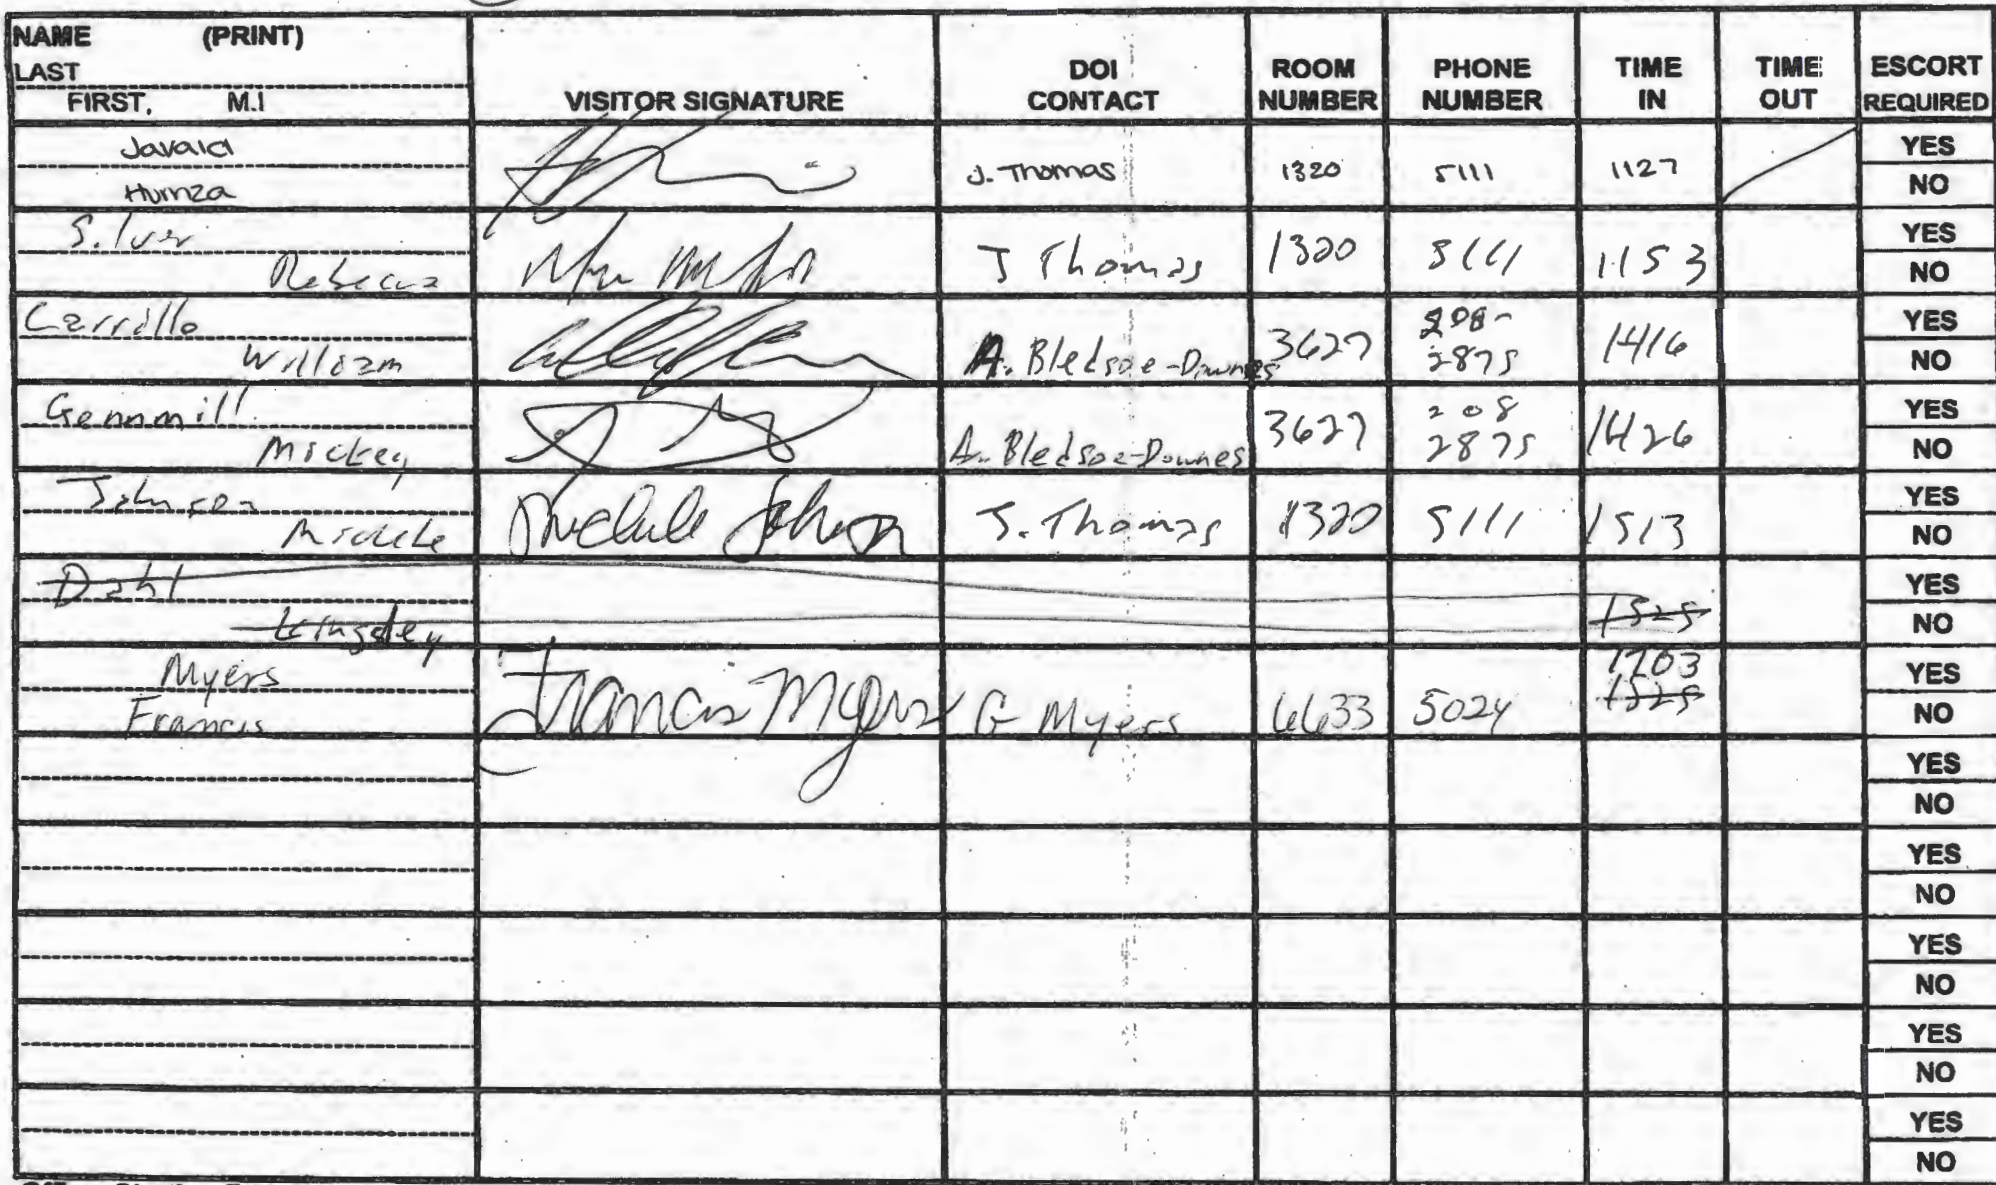 NAME (PRINT)
LAST
FIRST, M.I
VISITOR SIGNATURE
DOI CONTACT
ROOM NUMBER
PHONE NUMBER
TIME IN
TIME OUT
ESCORT REQUIRED
Javaid
Humza
J. Thomas 1320 5111 1127
YES
NO
Silver
Rebecca
J Thomas 1320 5111 1153
YES
NO
Carrillo
William
A. Bledsoe-Downes 3627 208-2875 1416
YES
NO
Gemmill
Mickey
A. Bledsoe-Downes 3627 208 2875 1426
YES
NO
Johnson
Michele
Michele Johnson J. Thomas 1320 5111 1513
YES
NO
Dahl
Kingsley
1525
YES
NO
Myers
Francis
Francis Myers G Myers 6633 5024 1703
1525
YES
NO
YES
NO
YES
NO
YES
NO
YES
NO
YES
NO